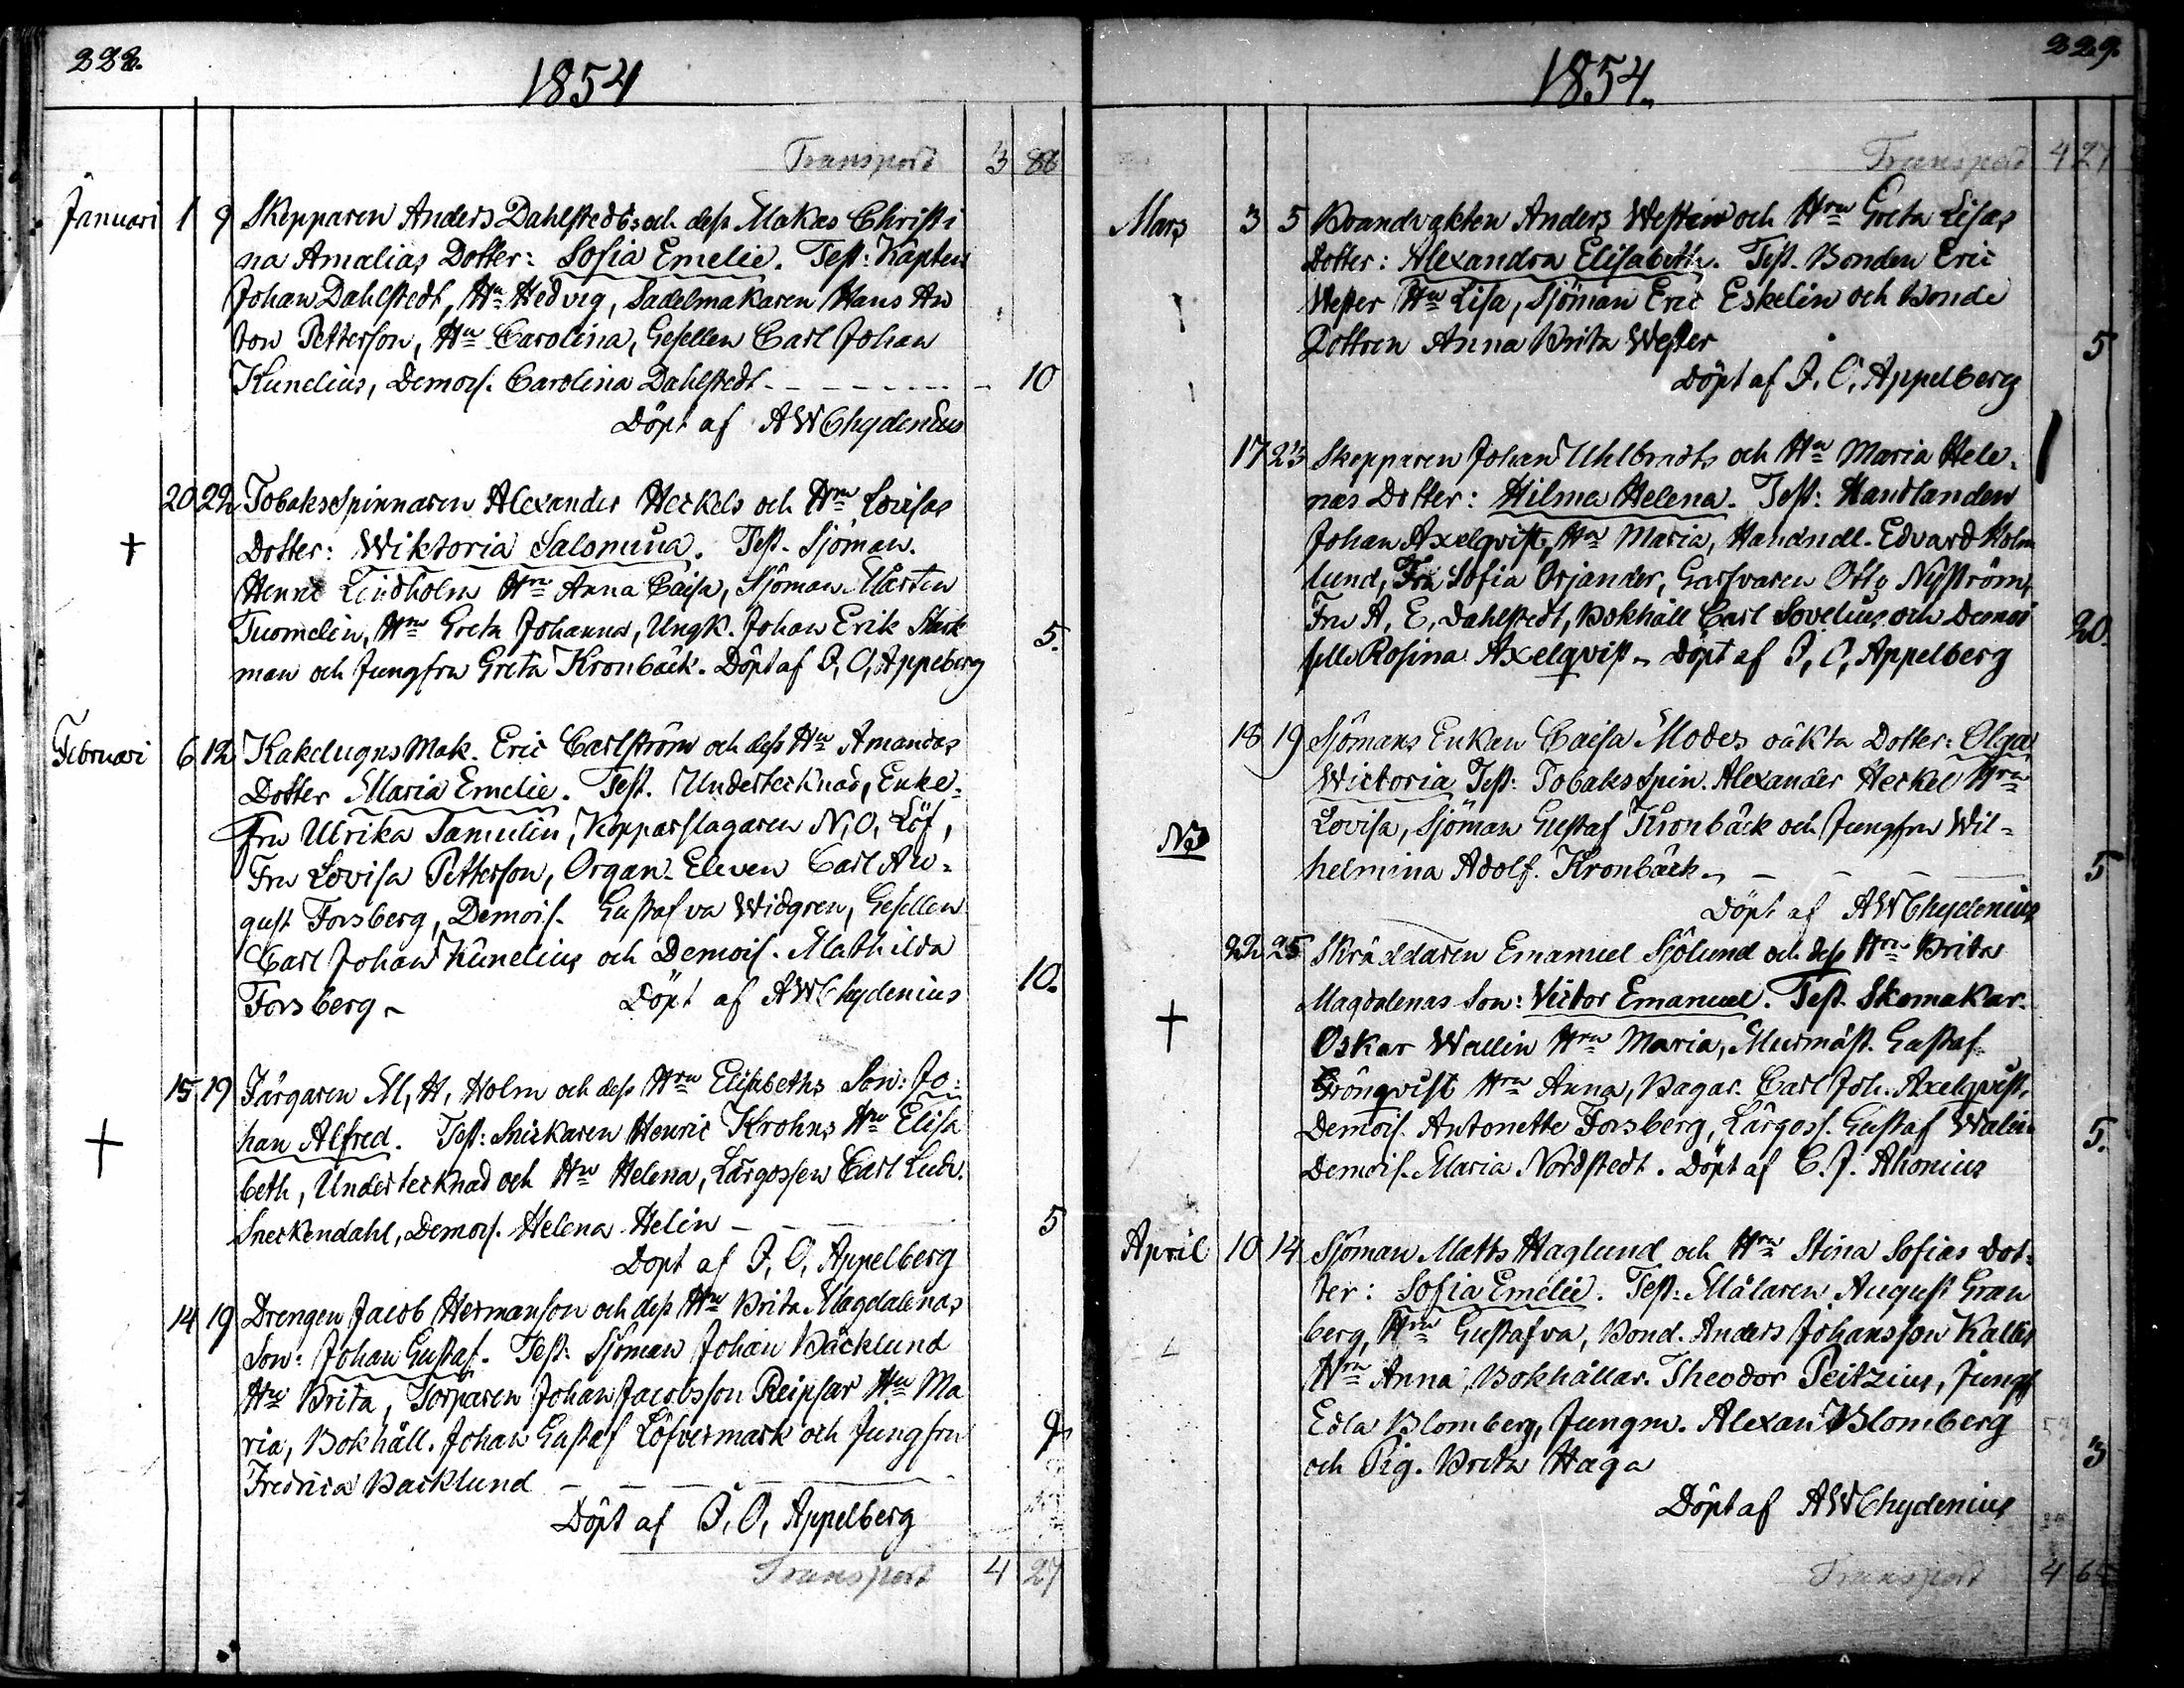 228.
1854
Transport 3 88
Januari 1 9 Skepparen Anders Dahlstedts och dess Makas Christi
na Amalias Dotter: Sofia Emelie. Test: Kapten
Johan Dahlstedt, Hu Hedvig, Sadelmakaren Hans An
ton Petterson, Hu Carolina, Gesellen Carl Johan
Kunelius, Demois. Carolina Dahlstedt - - - - - 10
Döpt af AWChydenius
20 22 Tobaksspinnaren Alexander Heckels och Hru Lovisas
+ Dotter: Wiktoria Salomina. Test. Sjöman.
Henric Lindholm Hru Anna Caisa, Sjöman Mårten
Tuomelin, Hru Greta Johanna, Ungk. Johan Erik Stark 5.
man och Jungfru Greta Kronbäck. Döpt af J, O, Appeberg
Februari 6 12 Kakelugns Mak. Eric Carlström och dess Hu Amandas
Dotter Maria Emelie. Test. Undertecknad, Enke-
Fru Ulrika Tamulin, Kopparslagaren N, O, Löf,
Fru Lovisa Petterson, Organ. Eleven Carl Au-
gust Forsberg, Demois. Gustafva Widgren, Gesellen
Carl Johan Kunelius och Demois. Mathilda
Forsberg - Döpt af AWChydenius 10.
15 19 Färgaren M, H, Holm och dess Hru Elisabeths Son: Jo-
+ han Alfred. Test: Snickaren Henric Krohns Hru Elisa
beth, Undertecknad och Hu Helena, Lärgossen Carl Ludv.
Sneckendahl, Demois. Helena Helin - - - 5
Döpt af J, O, Appelberg
14 19 Drengen Jacob Hermanson och dess Hru Brita Magdalenas
Son: Johan Gustaf. Test: Sjöman Johan Bäcklund
Hru Brita, Torparen Johan Jacobsson Reipsar Hu Ma
ria, Bokhåll. Johan Gustaf Löfvermark och Jungfru 9
Fredrica Backlund - - -
Döpt af J, O, Appelberg
Transport 4 27
229.
1854.
Transport 4 27
Mars 3 5 Brandvakten Anders Westers och Hru Greta Lisas
Dotter: Alexandra Elisabeth. Test. Bonden Eric
Wester Hu Lisa, Sjöman Eric Eskelin och Bonde
Dottren Anna Brita Wester 5
Döpt af J, O, Appelberg
17 23 Skepparen Johan Uhlbrandts och Hu Maria Hele-
nas Dotter: Hilma Helena. Test: Handlanden
Johan Axelqvist, Hu Maria, Handndl. Edvard Holm
lund, Fru Sofia Orjander, Garfvaren Otto Nyström,
Fru A, E, Dahlstedt, Bokhåll Carl Sovelius och Demoi 20.
selle Rosina Axelqvist - Döpt af J, O, Appelberg
18 19 Sjömans Enkan Caisa Modes oäkta Dotter: Olga
Wictoria Test: Tobaksspin. Alexander Heckel Hru
Lovisa, Sjöman Gustaf Kronbäck och Jungfru Wil-
helmina Adolf. Kronbäck - - - - 5
Döpt af AWChydenius
22 25 Skräddaren Emanuel Sjölund och dess Hru Brita
Magdalenas Son: Victor Emanuel. Test. Skomakar.
+ Oskar Wallin Hru Maria, Murmäst. Gustaf
Grönqvist Hru Anna, Bagar. Carl Joh. Axelqvist,
Demois. Antonette Forsberg, Lärgoss. Gustaf Walin 5.
Demois. Maria Nordstedt. Döpt af C. J. Ahonius
April 10 14 Sjöman Matts Haglund och Hru Stina Sofias Dot-
ter: Sofia Emelie. Test: Målaren August Gran
berg, Hru Gustafva, Bond. Anders Johansson Kallis
Hru Anna, Bokhållar. Theodor Peitzius, Jungf
Edla Blomberg, Jungm. Alexan Blomberg
och Pig. Brita Haga 3
Döpt af AWChydenius
Transport 4